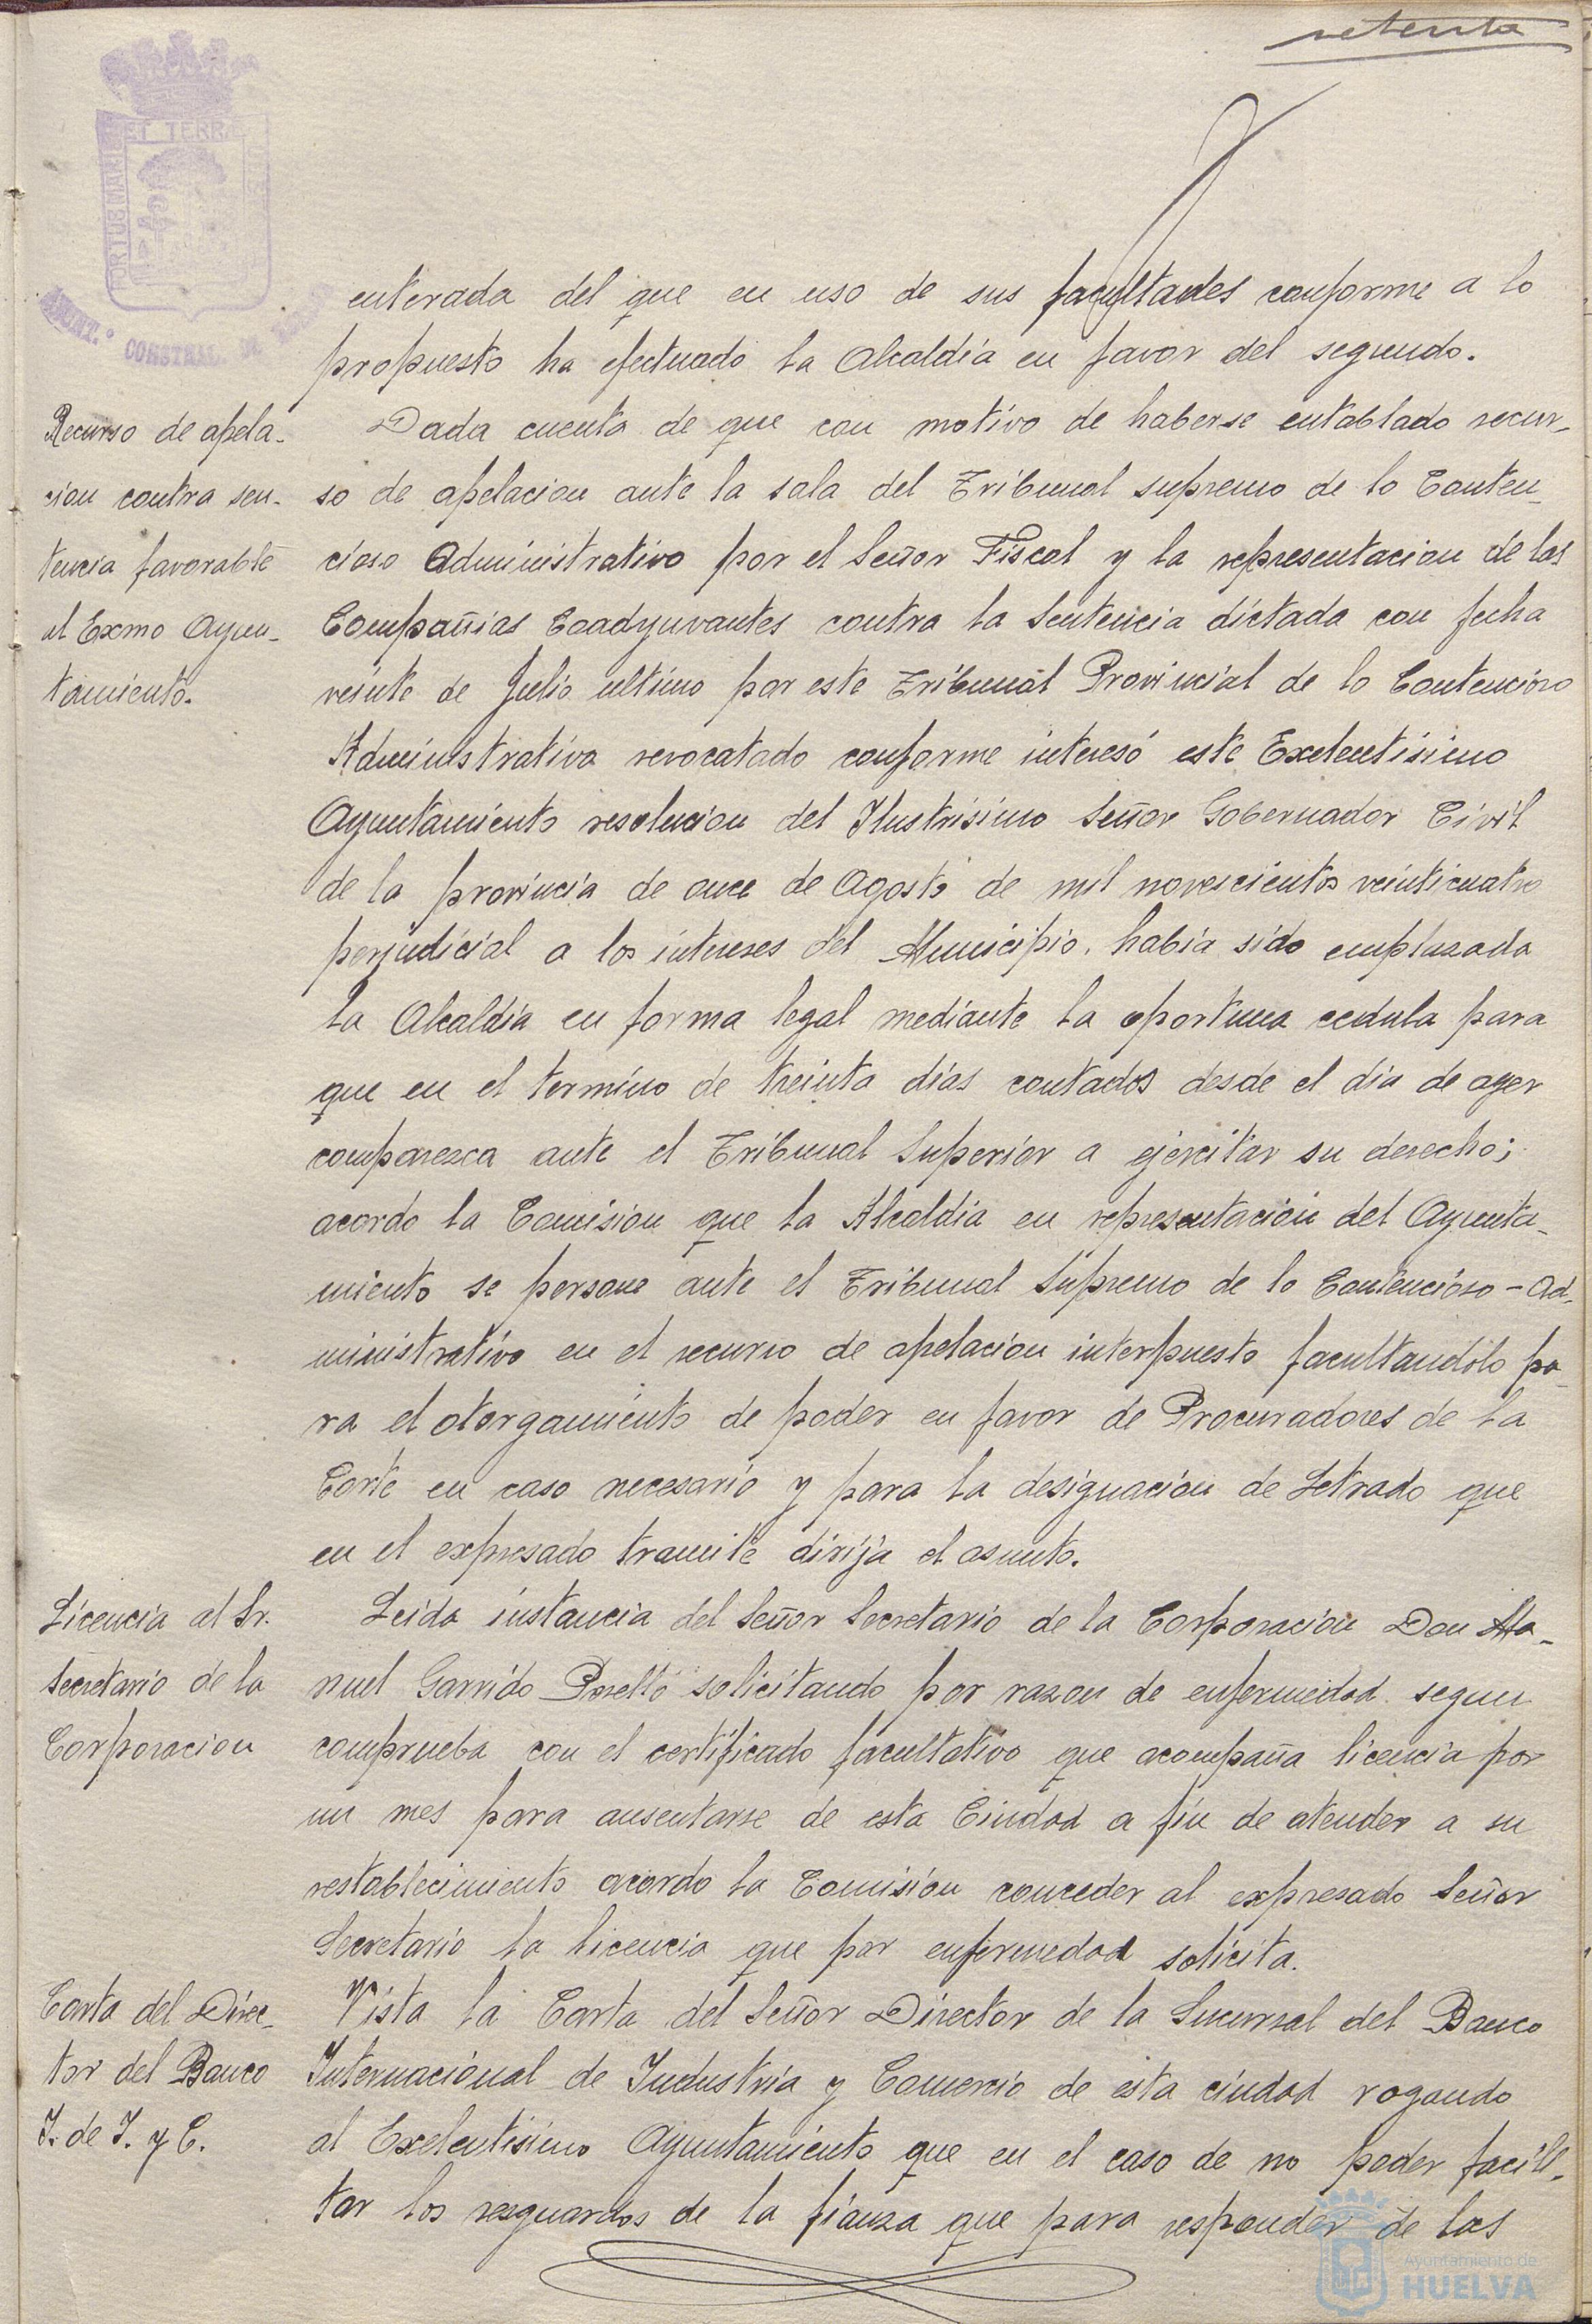 setenta
ET TERRÆ
PORTUS MARIS
CONSTNAL. DE
enterada del que en uso de sus facultades conforme a lo
propuesto ha efectuado la Alcaldía en favor del segundo.
Recurso de apela-
cion contra sen-
tencia favorable
al Exmo Ayun-
tamiento.
Dada cuenta de que con motivo de haberse entablado recur-
so de apelacion ante la sala del Tribunal supremo de lo Conten-
cioso Administrativo por el Señor Fiscal y la representacion de las
Compañias Coadyuvantes contra la Sentencia dictada con fecha
veinte de Julio ultimo por este Tribunal Provincial de lo Contencioso
Administrativo revocatado conforme interesó este Exelentisimo
Ayuntamiento resolucion del Ilustrisimo Señor Gobernador Civil
de la provincia de once de Agosto de mil novescientos veinticuatro
perjudicial a los intereses del Municipio, habia sido emplazada
la Alcaldía en forma legal mediante la oportuna cedula para
que en el termino de treinta dias contados desde el dia de ayer
comparezca ante el Tribunal Superior a ejercitar su derecho;
acordo la Comision que la Alcaldia en representacion del Ayunta-
miento se persone ante el Tribunal Supremo de lo Contencioso-Ad-
ministrativo en el recurso de apelacion interpuesto facultandolo pa-
ra el otorgamiento de poder en favor de Procuradores de la
Corte en caso necesario y para la designacion de Letrado que
en el expresado tramite dirija el asunto.
Licencia al Sr.
Secretario de la
Corporacion
Leida instancia del Señor Secretario de la Corporacion Don Ma-
nuel Garrido Perelló solicitando por razon de enfermedad segun
comprueba con el certificado facultativo que acompaña licencia por
un mes para ausentarse de esta Ciudad a fin de atender a su
restablecimiento acordo la Comision conceder al expresado Señor
Secretario la licencia que por enfermedad solicita.
Carta del Direc-
tor del Banco
I. de I. y C.
Vista la Carta del Señor Director de la Sucursal del Banco
Internacional de Industria y Comercio de esta ciudad rogando
al Exelentisimo Ayuntamiento que en el caso de no poder facili-
tar los resguardos de la fianza que para responder de las
Ayuntamiento de
HUELVA